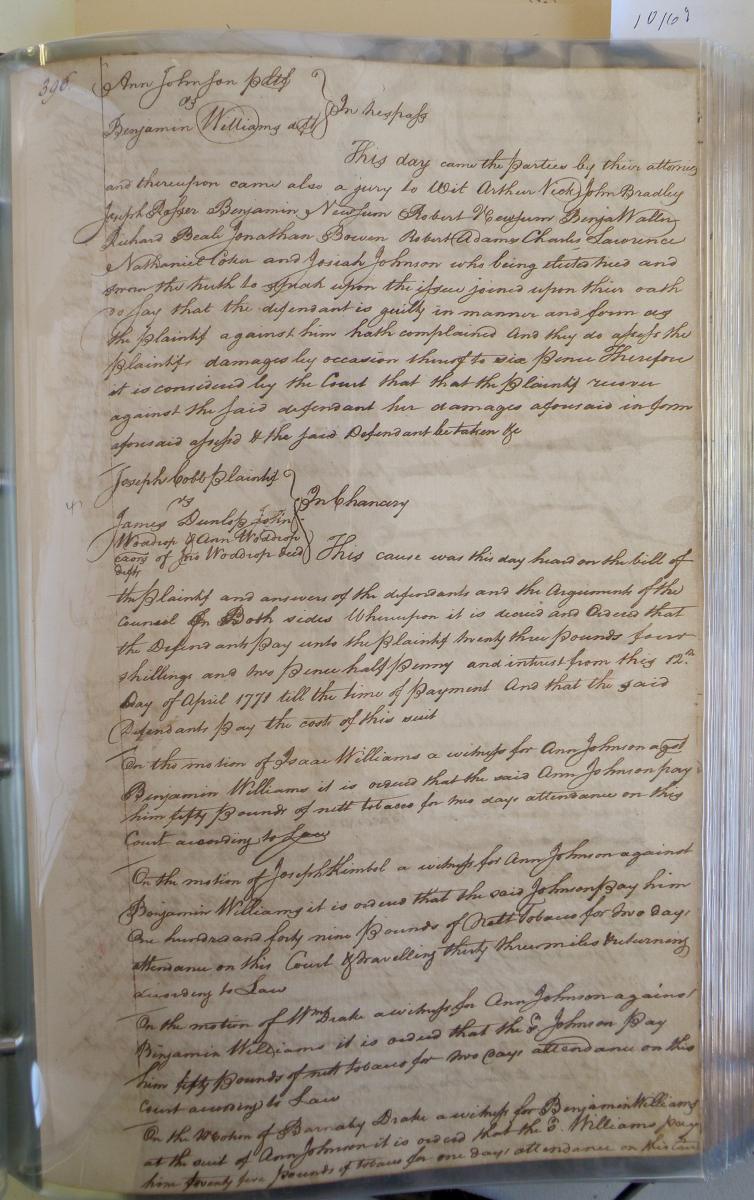 10/63
396
Ann Johnson pltf
vs
Benjamin Williams deft
In trespass
This day came the parties by their attornies
and thereupon came also a jury to wit Arthur Nicks John Bradley
Joseph Rosser Benjamin Newsum Robert Newsum Benja Waller
Richard Beale Jonathan Bowen Robert Adams Charles Lawrence
Nathaniel and Josiah Johnson who being elected tried and
sworn the truth to speak upon the issue joined upon thier oath
do say that the defendant is guilty in manner and form as
the plaintif against him hath complained And they do assess the
plaintifs damages by occasion thereof to six pence Therefore
it is considered by the Court that that the plaintif recover
against the said defendant her damages aforesaid in form
aforesaid assess'd & the said Defendant be taken &c
Joseph Cobb plaintif
vs
James Dunlop John
Wodrop & Ann Woddrop
exors of Jno Woddrop decd
defts
In Chancery
This cause was this day heard on the bill of
the plaintif and answers of the defendants and the Arguments of the
Counsel On Both sides Whereupon it is decreed and Ordered that
the Defendants Pay unto the plaintif twenty three pounds four
shillings and two pence half penny and interest from this 12th
Day of April 1771 till the time of payment And that the said
Defendants pay the costs of this suit
On the motion of Isaac Williams a witness for Ann Johnson agst
Benjamin Williams it is ordered that the said Ann Johnson pay
him fifty pounds of nett tobacco for two days attendance on this
Court according to Law
On the motion of Joseph Kimbol a witness for Ann Johnson against
Benjamin Williams it is ordered that the said Johnson pay him
One hundred and forty nine pounds of Nett Tobacco for two days
attendance on this Court & travelling thirty three miles & returning
according to Law
On the motion of Wm Drake a witness for Ann Johnson against
Benjamin Williams it is ordered that the sd Johnson pay
him fifty pounds of nett tobacco for two days attendance on this
Court according to Law
On the Motion of Barnaby Drake a witness for Benjamin Williams
at the suit of Ann Johnson it is ordered that the sd Williams pay
him twenty five pounds of tobacco for one days attendance on this